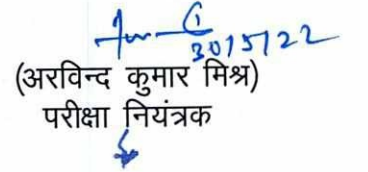 30/5/22
(अरविन्द कुमार मिश्र)
परीक्षा नियंत्रक